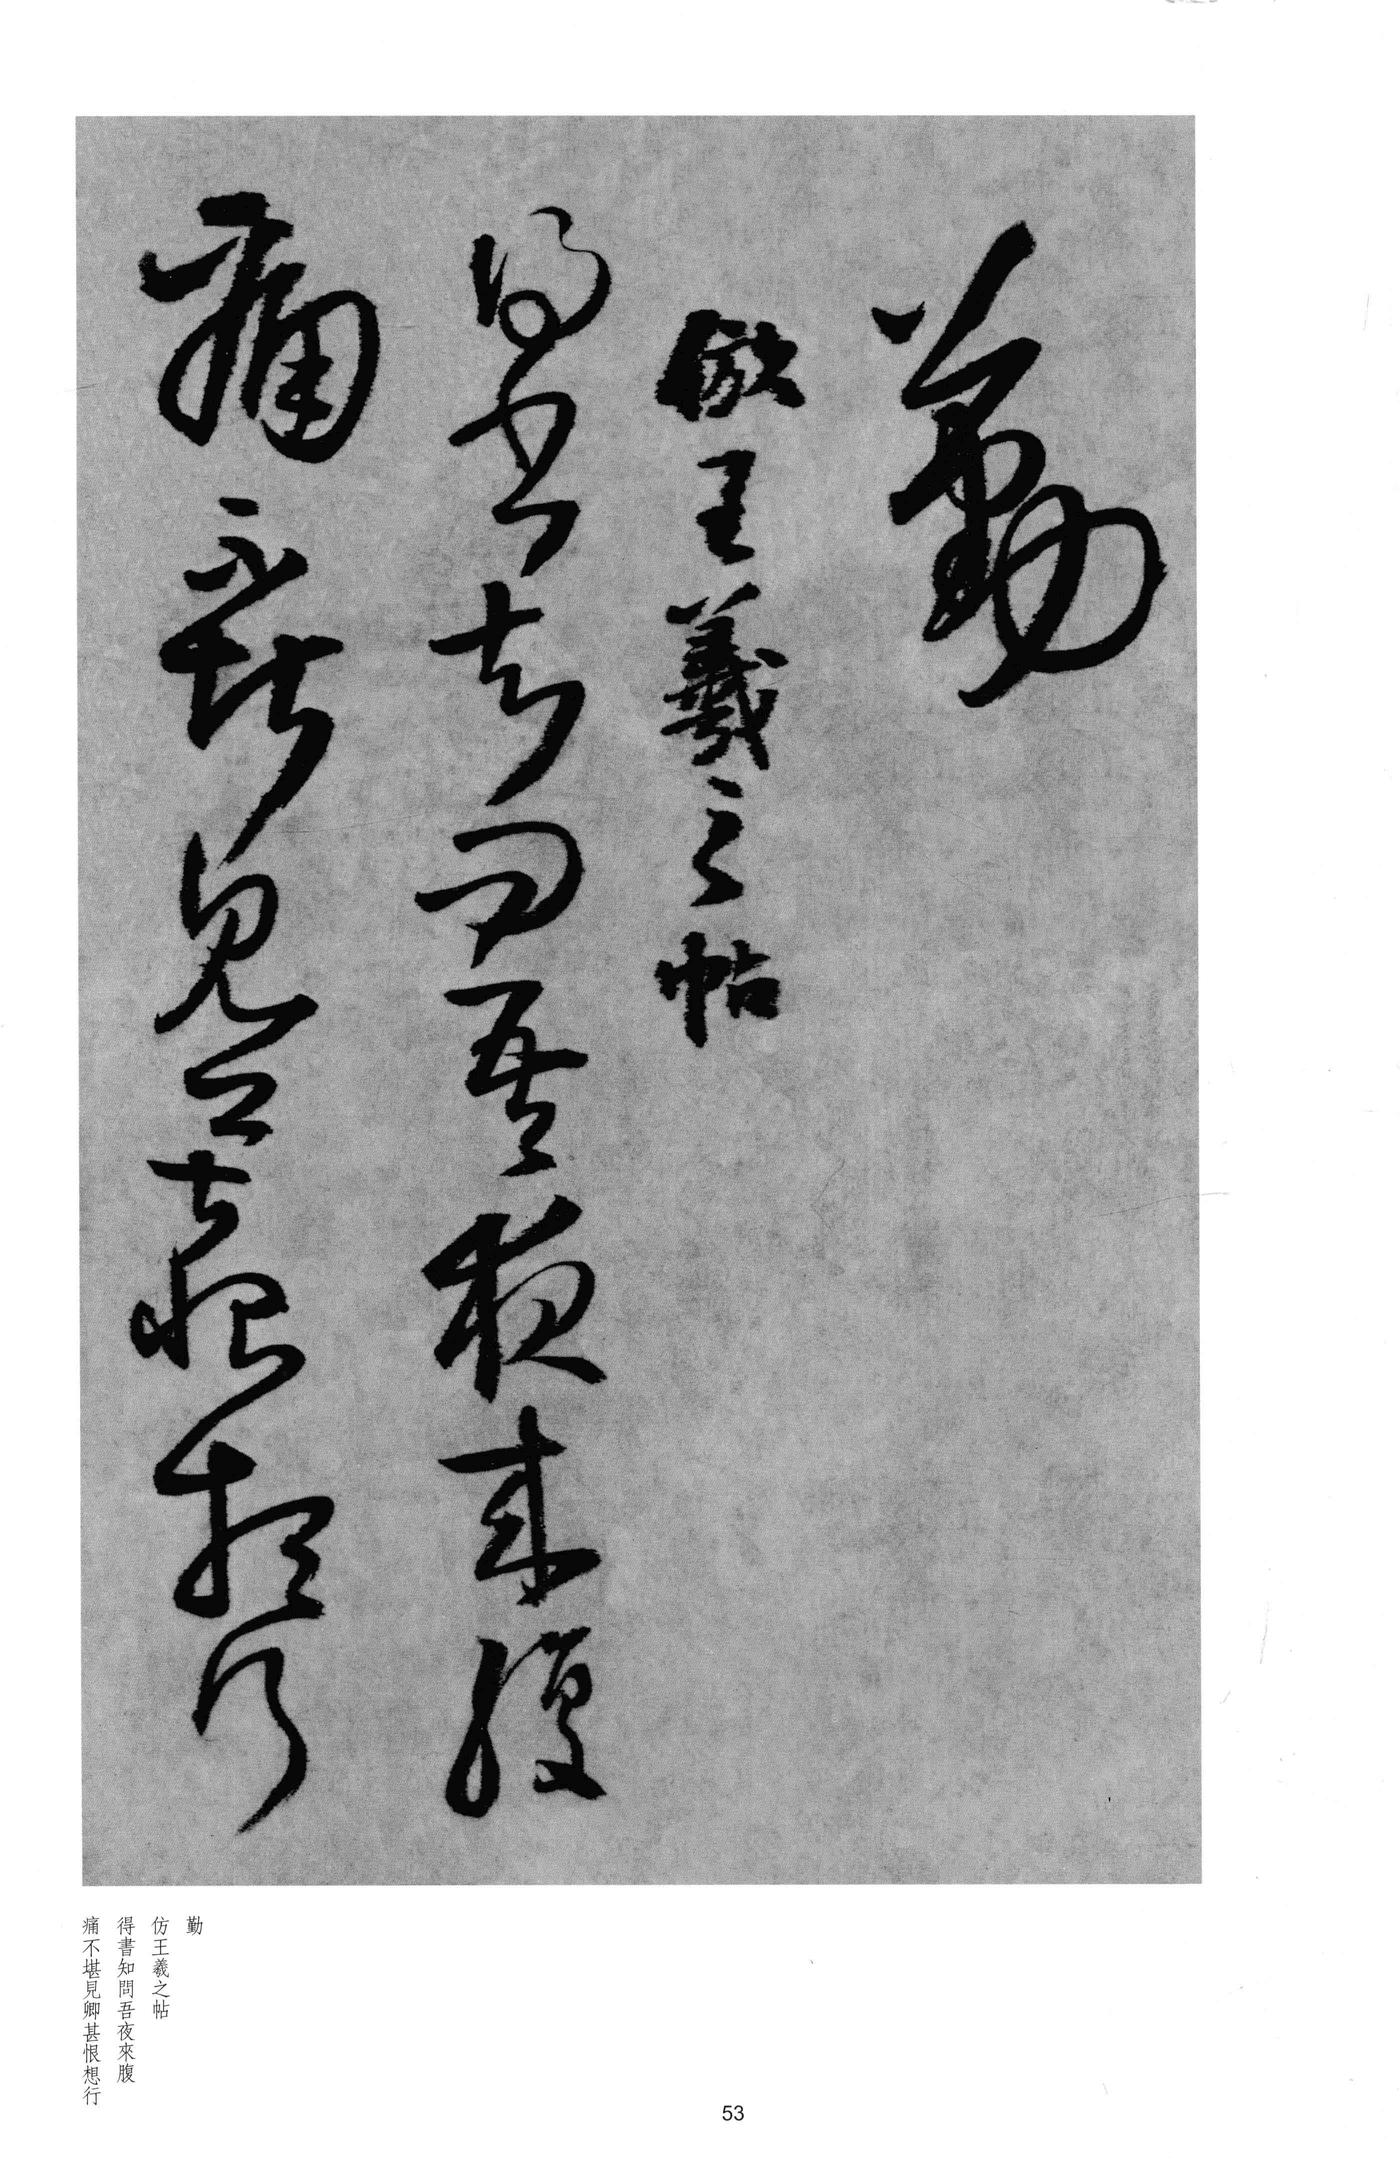 勤
倣王羲之帖
得書知問吾夜來腹
痛不堪見卿甚恨想行
勤
仿王羲之帖
得書知問吾夜來腹
痛不堪見卿甚恨想行
53